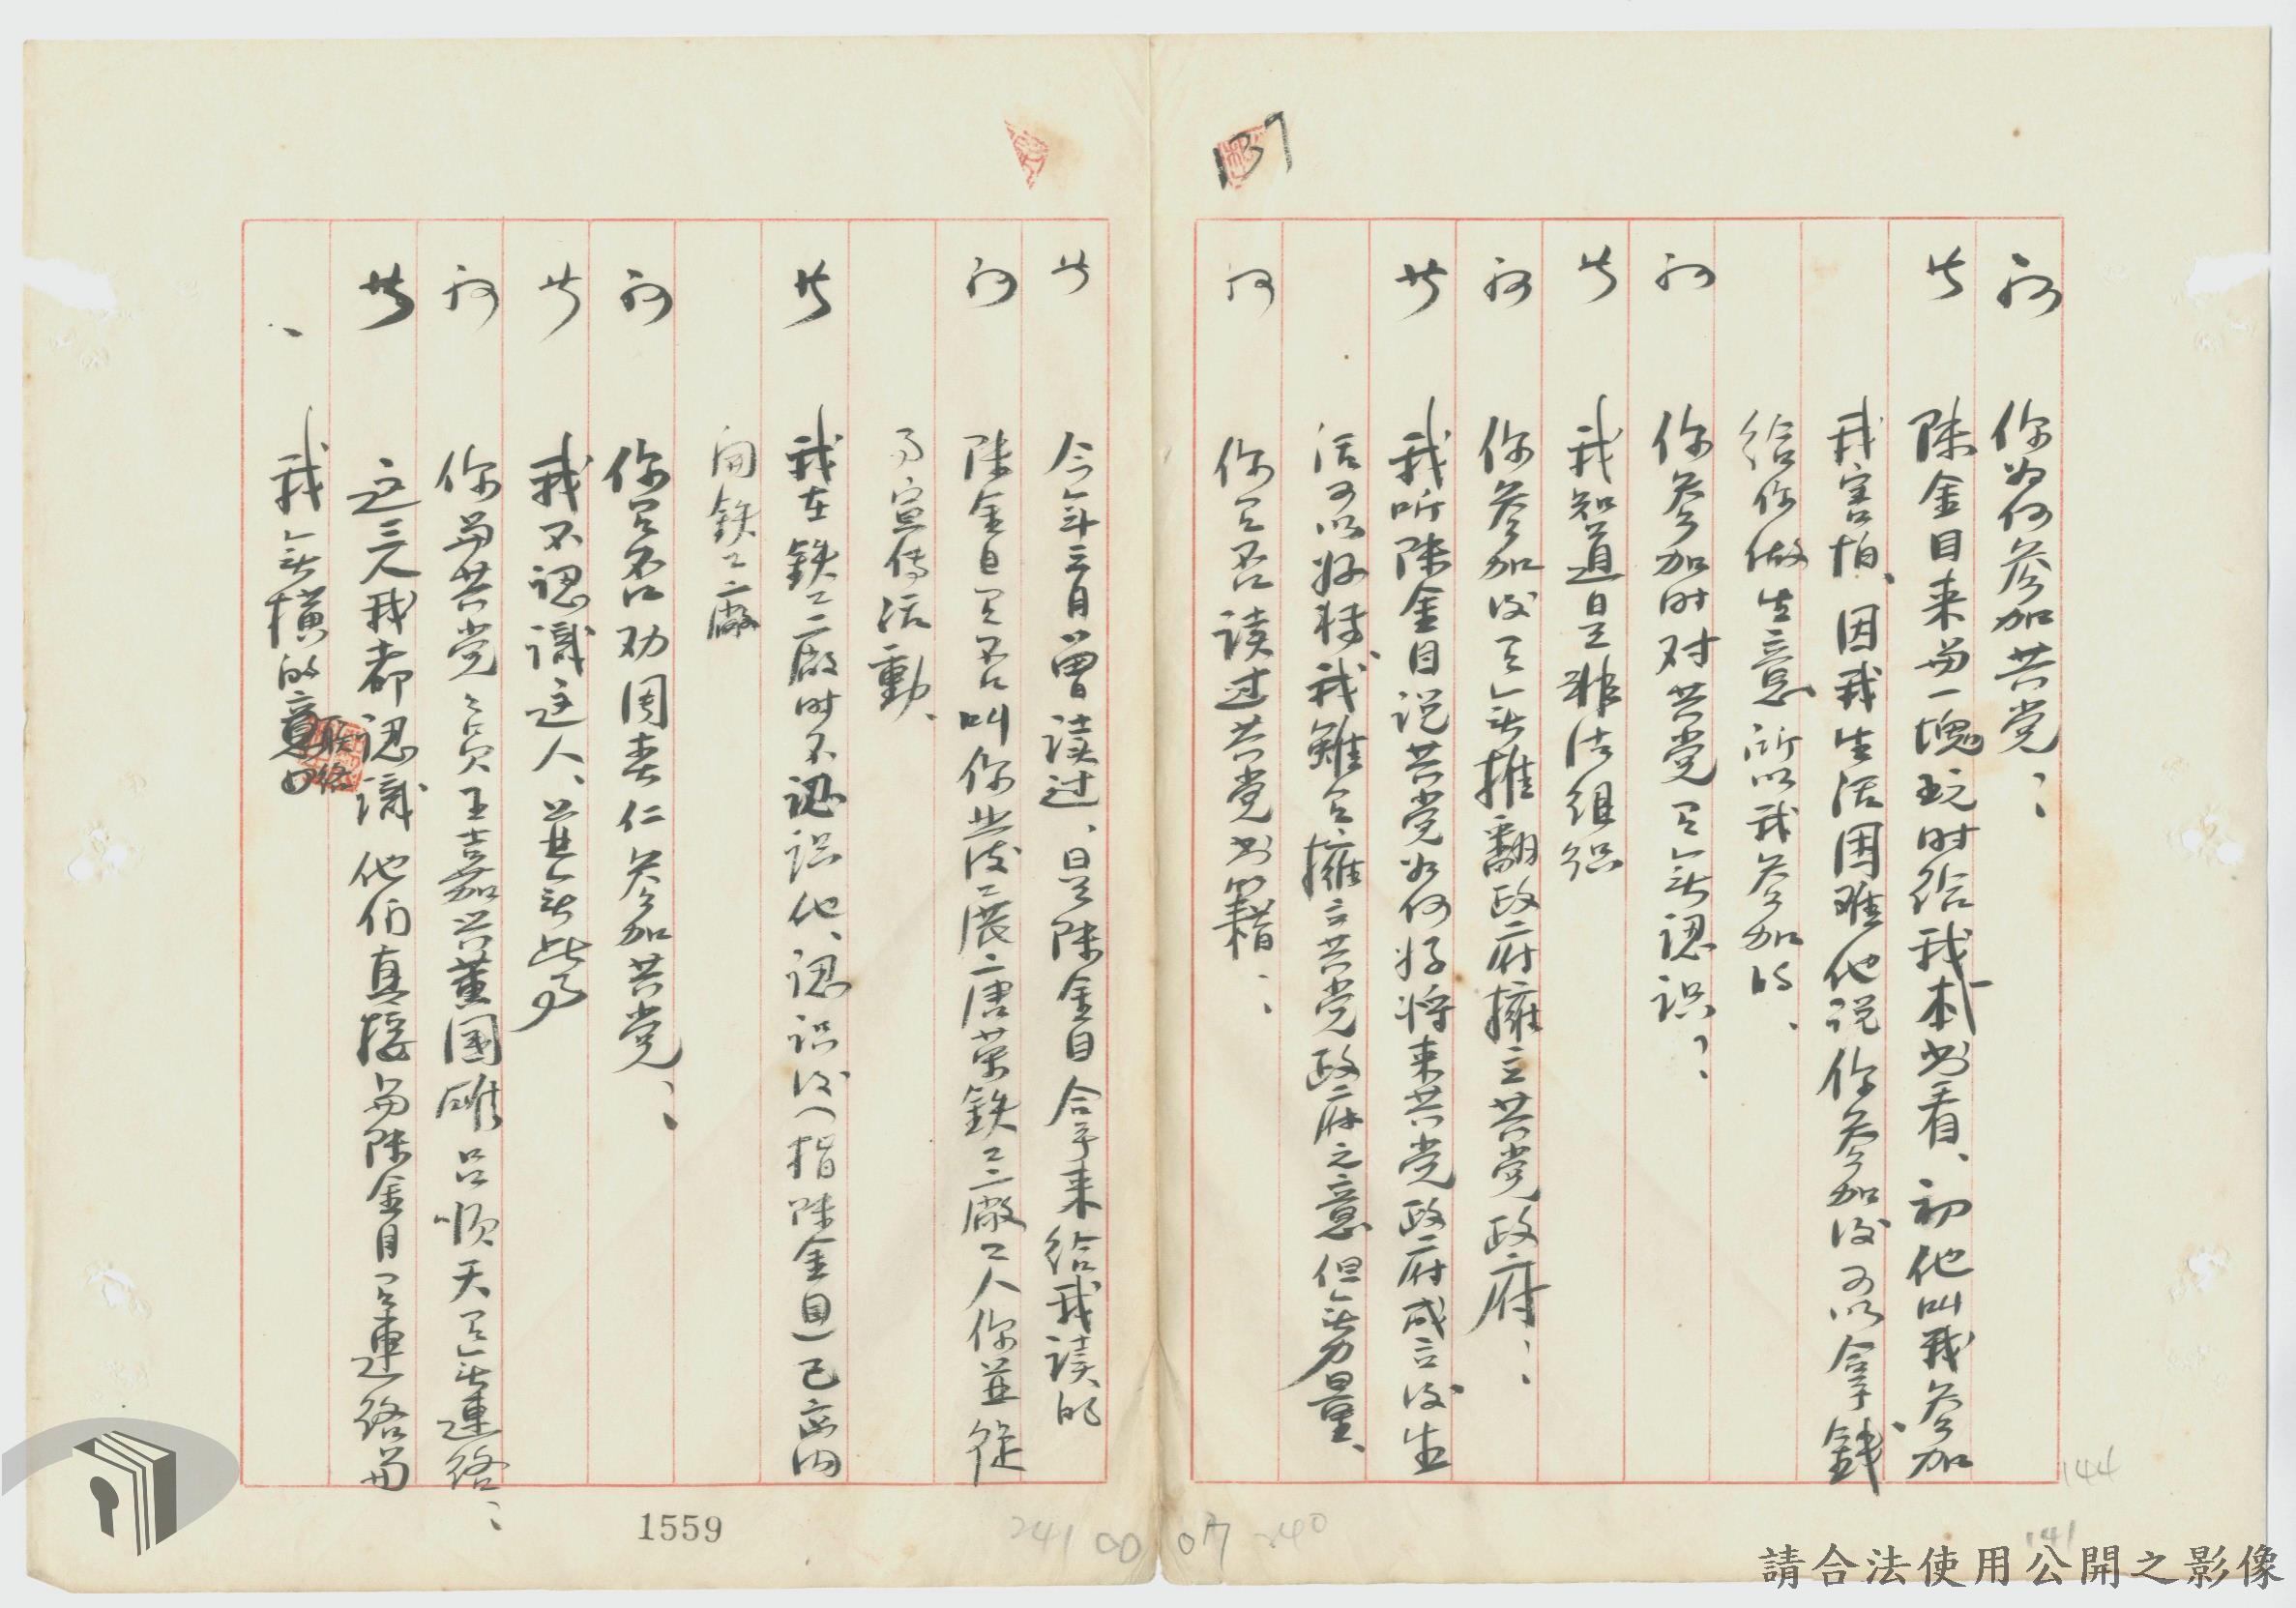 137
問 你為何參加共党？
答 陳金目来与我一塊玩时给我本书看、初他叫我参加
我害怕、因我生活困难他说你参加后可以拿錢、
给你做生意所以我参加的、
問 你参加时对共党有無認识？
答 我知道是非法组织
問 你参加后有無推翻政府擁立共党政府？
答 我听陳金目说共党如何好将来共党政府成立后生
活可以好转、我雖有擁立共党政府之意但無力量、
問 你有否读过共党书籍？
答 今年三月曾读过、是陳金目合手来给我读的
問 陳金目有否叫你发展唐荣鉄工廠工人你並從
事宣传活動、
答 我在鉄工廠时不認识他、認识后（指陳金目）已離内
開鉄工廠
問 你有否劝周春仁参加共党？
答 我不認識这人、並無此事
問 你与共党党员王嘉 董国雄呂順天有無連絡？
答 这三人我都認識他们直接与陳金目有連络与
、 我無横的意
联络
1559
241
00
07
240
144
141
請合法使用公開之影像